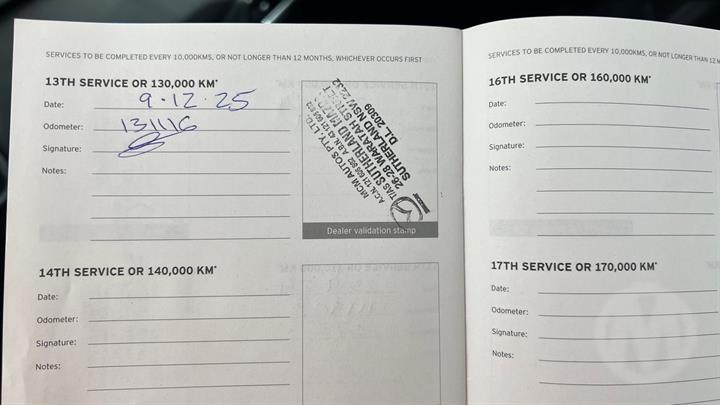 SERVICES TO BE COMPLETED EVERY 10,000KMS, OR NOT LONGER THAN 12 MONTHS, WHICHEVER OCCURS FIRST
13TH SERVICE OR 130,000 KM*
Date: 9.12.25
Odometer: 131116
Signature:
Notes:
MCM AUTOS PTY. LTD.
A.C.N. 121 609 892 A.B.N. 43 121 609 892
T/AS SUTHERLAND MAZDA
26-28 WARATAH STREET
SUTHERLAND NSW 2232
D.L. 20309
Dealer validation stamp
14TH SERVICE OR 140,000 KM*
Date:
Odometer:
Signature:
Notes:
SERVICES TO BE COMPLETED EVERY 10,000KMS, OR NOT LONGER THAN 12 M
16TH SERVICE OR 160,000 KM*
Date:
Odometer:
Signature:
Notes:
17TH SERVICE OR 170,000 KM*
Date:
Odometer:
Signature:
Notes: